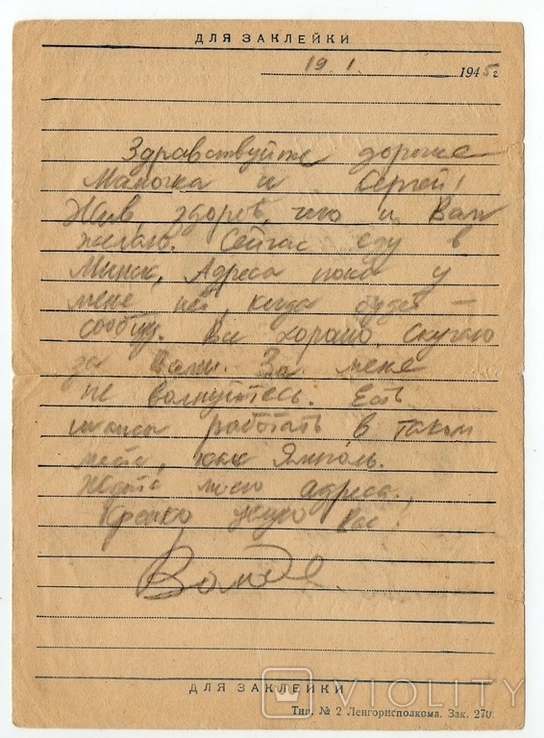 ДЛЯ ЗАКЛЕЙКИ
19. 1. 1945 г
Здравствуйте дорогие
Мамочка и Сергей!
Жив, здоров, чего и Вам
желаю. Сейчас еду в
Минск, Адреса пока у
меня нет, когда будет —
сообщу. Все хорошо. Скучаю
за Вами. За меня
не волнуйтесь. Есть
шансы работать в таком
месте, как Ямполь.
Ждите моего адреса.
Крепко целую Вас!
ДЛЯ ЗАКЛЕЙКИ
Тип. № 2 Ленгорисполкома. Зак. 270.
VIOLITY